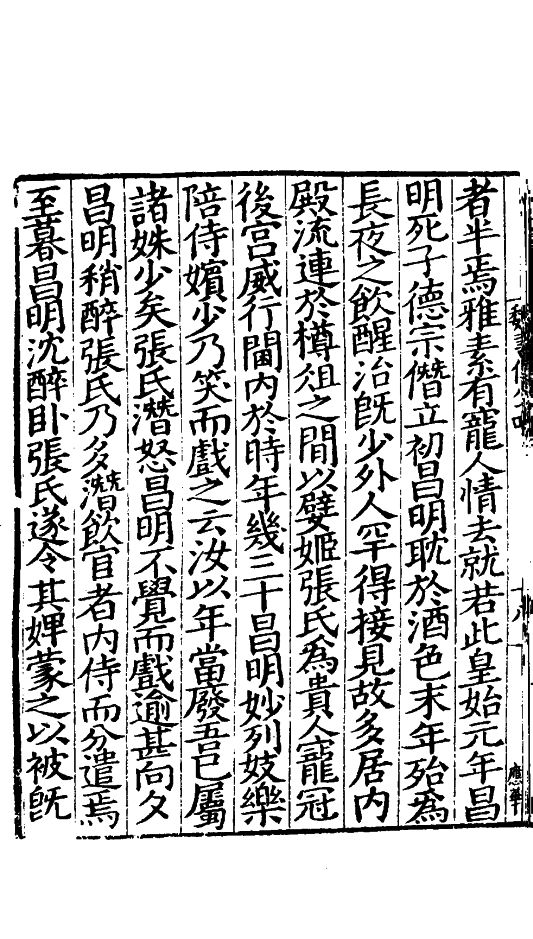 者半焉雅素有寵人情去就若此皇始元年昌
明死子德宗僭立初昌明耽於酒色末年殆為
長夜之飲醒治既少外人罕得接見故多居内
殿流連於樽俎之間以嬖姬張氏為貴人寵冠
後宫威行閫内於時年幾三十昌明妙列妓樂
陪侍嬪少乃笑而戲之云汝以年當廢吾已屬
諸姝少矣張氏潛怒昌明不覺而戲逾甚向夕
昌明稍醉張氏乃多潛飲宦者内侍而分遣焉
至暮昌明沈醉卧張氏遂令其婢蒙之以被既